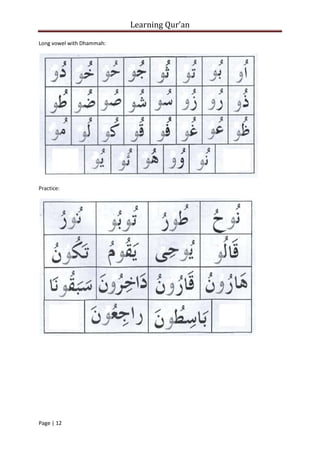 Learning Qur'an
Long vowel with Dhammah:
اُو بُو تُو ثُو جُو حُو خُو دُو
ذُو رُو زُو سُو شُو صُو ضُو طُو
ظُو عُو غُو فُو قُو كُو لُو مُو
نُو وُو هُو ئُو يُو
Practice:
نُوحُ طُورُ تُوبُو نُورُ
قَالُو يُوحِى يَقُومُ تَكُونُ
هَارُونُ قَارُونُ دَاخِرُونَ سَبَقُونَا
بَاسِطُونَ راجِعُونَ
Page | 12